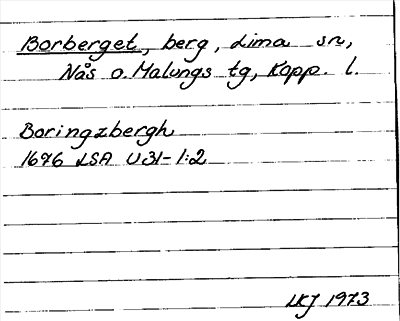 Borberget, berg, Lima sn,
Nås o. Malungs tg, Kopp. l.
Boringzbergh
1676 LSA U31-1:2
LKJ 1973